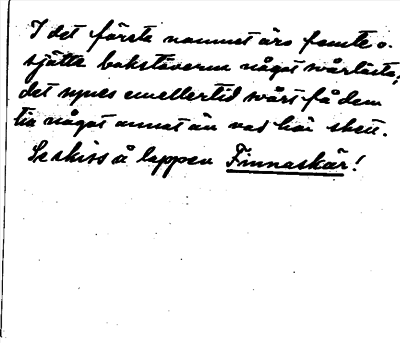 I det första namnet äro femte o.
sjätte bokstäverna något svårlästa,
det synes emellertid svårt få dem
till något annat än vad här skett.
Se skiss å lappen Finnaskär!